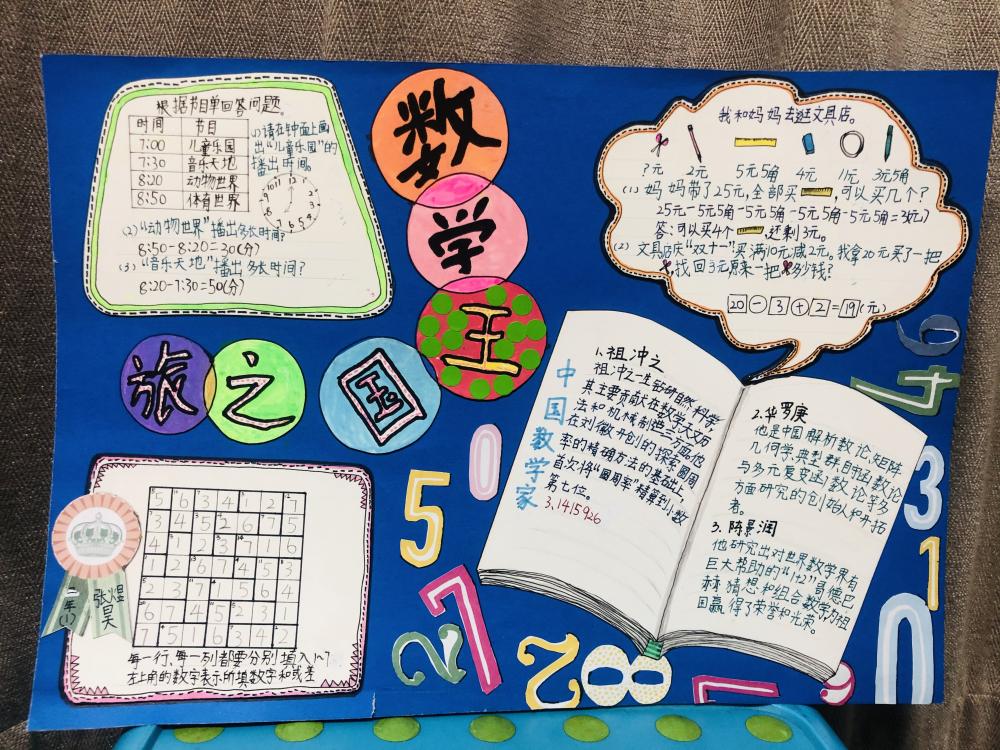 数
学
王
国
之
旅
根据节目单回答问题。
时间 节目
7:00 儿童乐园
7:30 音乐天地
8:20 动物世界
8:50 体育世界
(1)请在钟面上画
出“儿童乐园”的
播出时间。
(2)“动物世界”播出多长时间?
8:50-8:20=30(分)
(3)“音乐天地”播出多长时间?
8:20-7:30=50(分)
我和妈妈去逛文具店。
?元 2元 5元5角 4元 1元 3元5角
(1)妈妈带了25元,全部买 ,可以买几个?
25元-5元5角-5元5角-5元5角-5元5角=3(元)
答:可以买4个 ,还剩3元。
(2)文具店庆“双十一”买满10元减2元。我拿20元买了一把
,找回3元原来一把 多少钱?
20-3+2=19(元)
中国数学家
1.祖冲之
祖冲之一生钻研自然科学,
其主要贡献在数学、天文历
法和机械制造三方面他
在刘徽开创的探索圆周
率的精确方法的基础上,
首次将“圆周率”精算到小数
第七位。
3.1415926
2.华罗庚
他是中国解析数论,矩阵
几何学、典型群、自守函数论
与多元复变函数论等多
方面研究的创始人和开拓
者。
3.陈景润
他研究出对世界数学界有
巨大帮助的“1+2”哥德巴
赫猜想和组合数学为祖
国赢得了荣誉和光荣。
一年(1)
张煜昊
每一行、每一列都要分别填入1~7
左上角的数字表示所填数字和或差
5
0
2
7
2
2
8
7
6
4
3
1
0